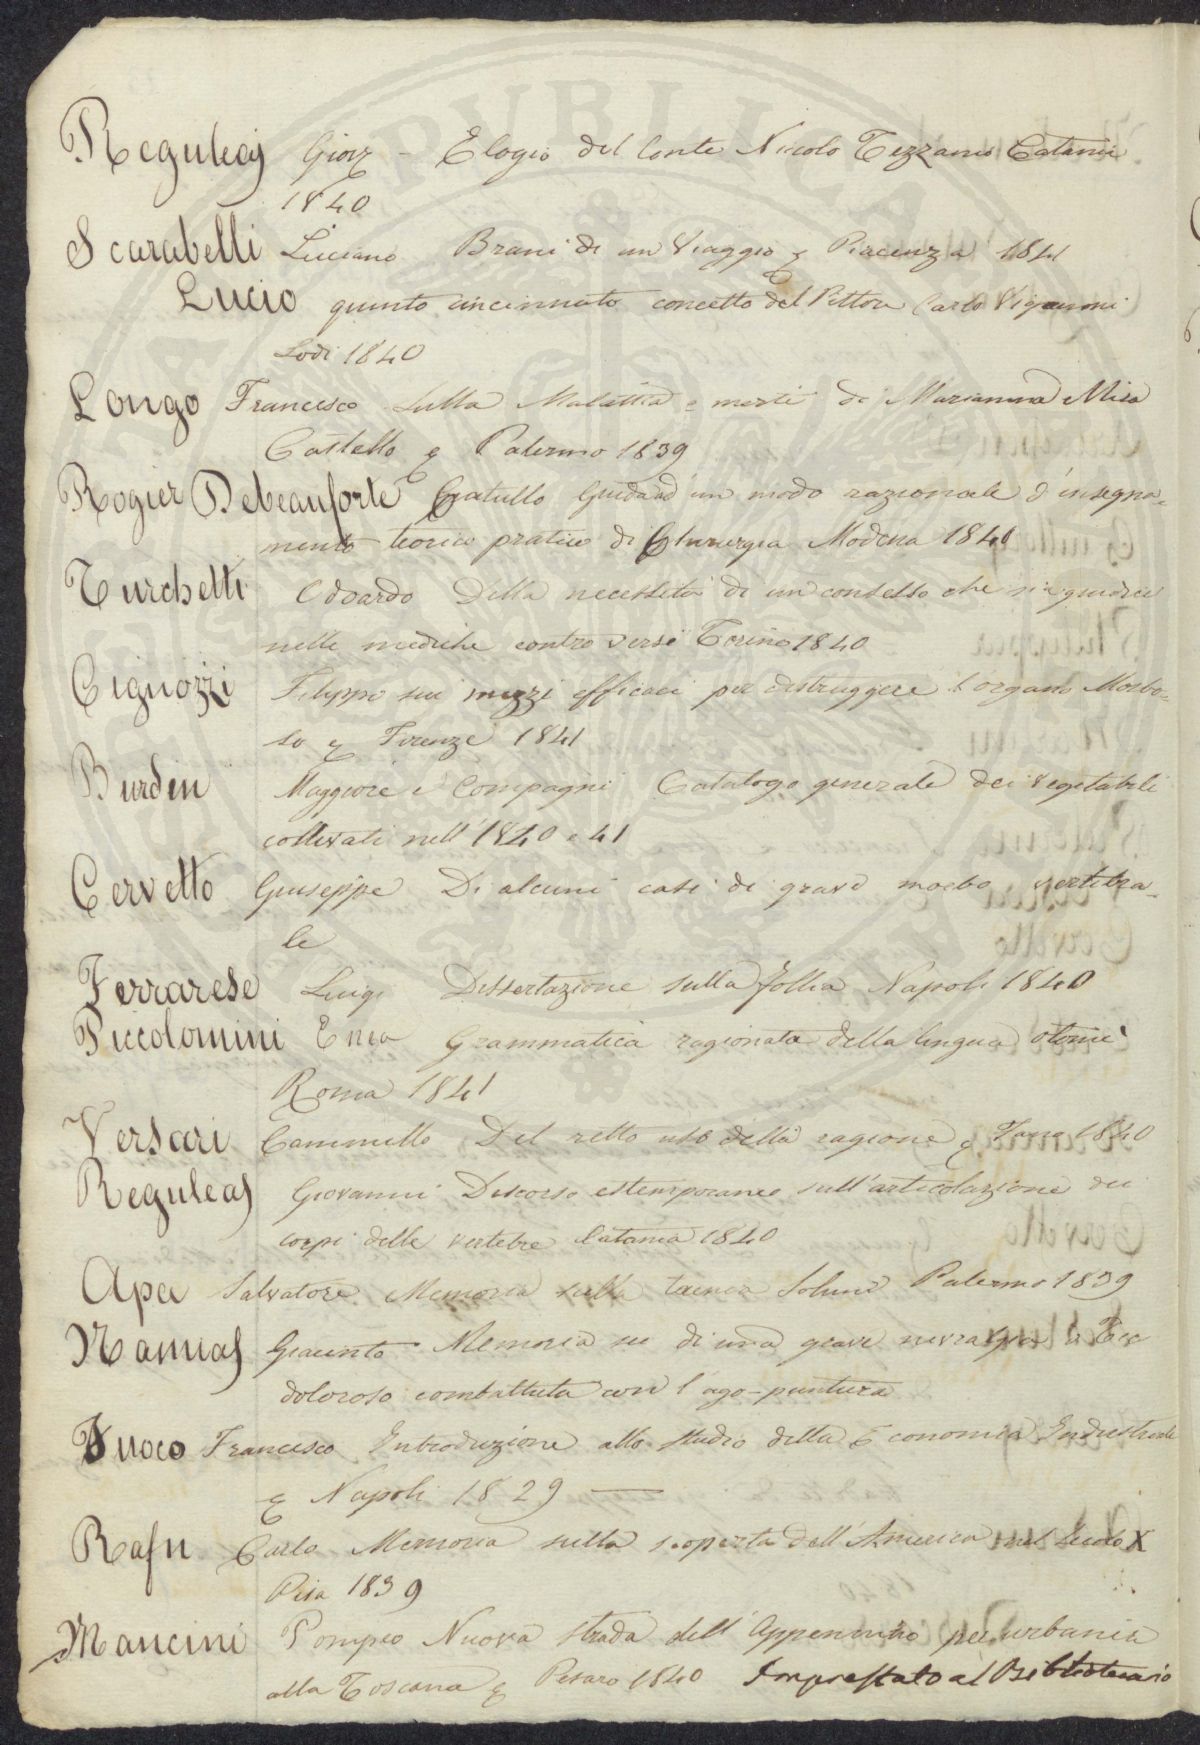 Reguleas Giov - Elogio del Conte Nicolo Tezzano Catania
1840
Scarabelli Luciano Brani di un Viaggio Piacenza 1841
Lucio quinto cincinnato concetto del Pittore Carlo Vigoroni
Lodi 1840
Longo Francesco Sulla Malattia e morte di Marianna Mira
Castello Palermo 1839
Rogier Debeauforte Catullo Guidand un modo razionale d'insegna-
mento teorico pratico di Chirurgia Modena 1840
Turchetti Odoardo Della necessità di un consesso che
nelle mediche controversie Torino 1840
Cignozzi Filippo sui mezzi efficaci per distruggere l'organo Morbo-
so Firenze 1841
Burdin Maggiore e Compagni Catalogo generale dei Vegetabili
coltivati nell'1840 e 41
Cervetto Giuseppe Di alcuni casi di grave morbo vertebra-
le
Ferrarese Luigi Dissertazione sulla follia Napoli 1840
Piccolomini Enea Grammatica ragionata della lingua otomì
Roma 1841
Versari Cammillo Del retto uso della ragione 1840
Reguleas Giovanni Discorso estemporaneo sull'articolazione dei
corpi delle vertebre Catania 1840
Apa Salvatore Memoria sulla taenia Solium Palermo 1839
Namias Giacinto Memoria su di una grave nevralgia o Tic
doloroso combattuta con l'ago-puntura
Fuoco Francesco Introduzione allo studio della Economia Industriale
Napoli 1829
Rafn Carlo Memoria sulla scoperta dell'America nel Secolo X
Pisa 1839
Mancini Pompeo Nuova strada dell'Appennino per urbania
alla Toscana Pesaro 1840 Imprestato al Bibliotecario